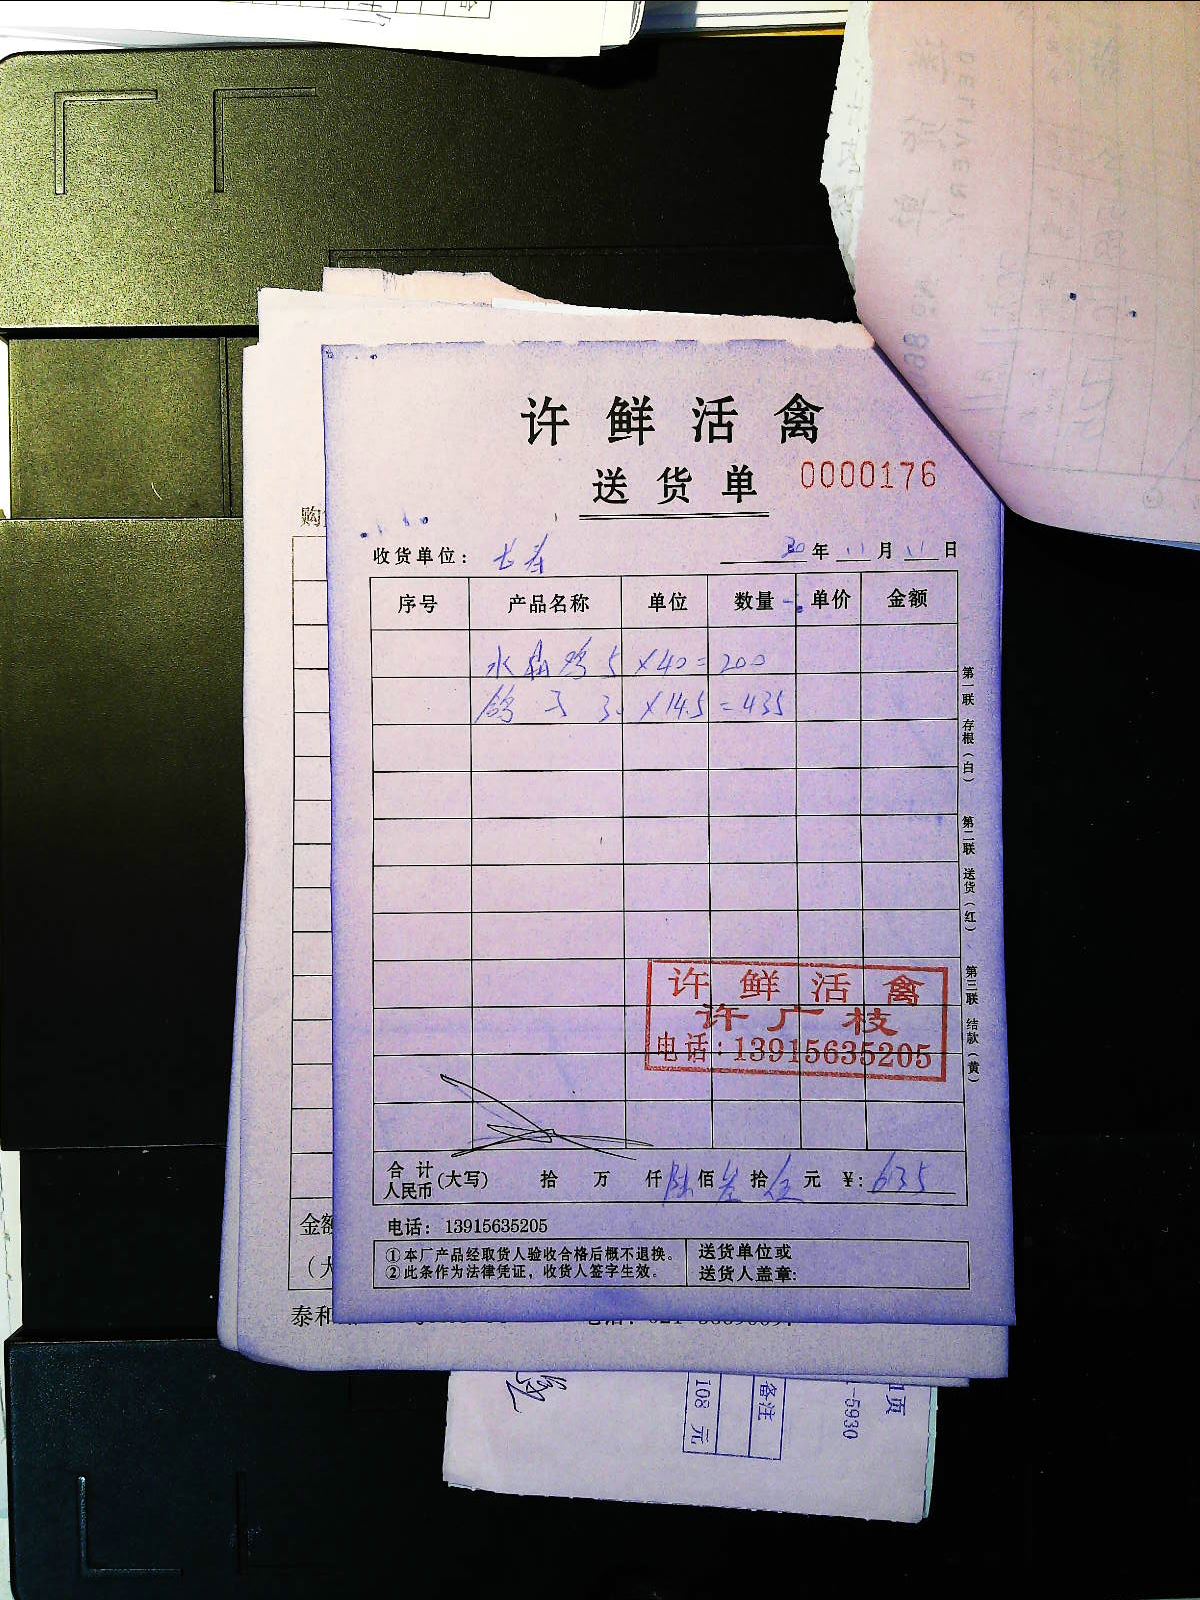 许鲜活禽
送货单 0000176
收货单位： 长寿 20年 11月 11日
序号 产品名称 单位 数量 单价 金额
水 鸡 5 ×40=200
鸽子 30 ×14.5=435
第一联 存根（白） 第二联 送货（红） 第三联 结款（黄）
许鲜活禽
许广枝
电话：13915635205
合计人民币（大写） 拾 万 仟陆佰叁拾伍元 ¥：635
电话：13915635205
①本厂产品经取货人验收合格后概不退换。
②此条作为法律凭证，收货人签字生效。
送货单位或
送货人盖章：
购
金额
（大
泰和
备注
108 元
1页
-5930
DELIVERY